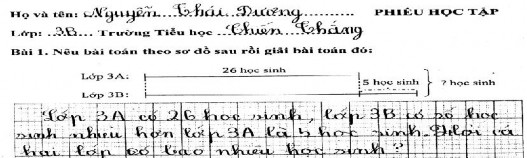 Họ và tên: Nguyễn Thái Dương PHIẾU HỌC TẬP
Lớp: 3B Trường Tiểu học Chiến Thắng
Bài 1. Nêu bài toán theo sơ đồ sau rồi giải bài toán đó:
26 học sinh
Lớp 3A:
5 học sinh ? học sinh
Lớp 3B:
Lớp 3A có 26 học sinh, lớp 3B có số học
sinh nhiều hơn lớp 3A là 5 học sinh. Hỏi cả
hai lớp có bao nhiêu học sinh?